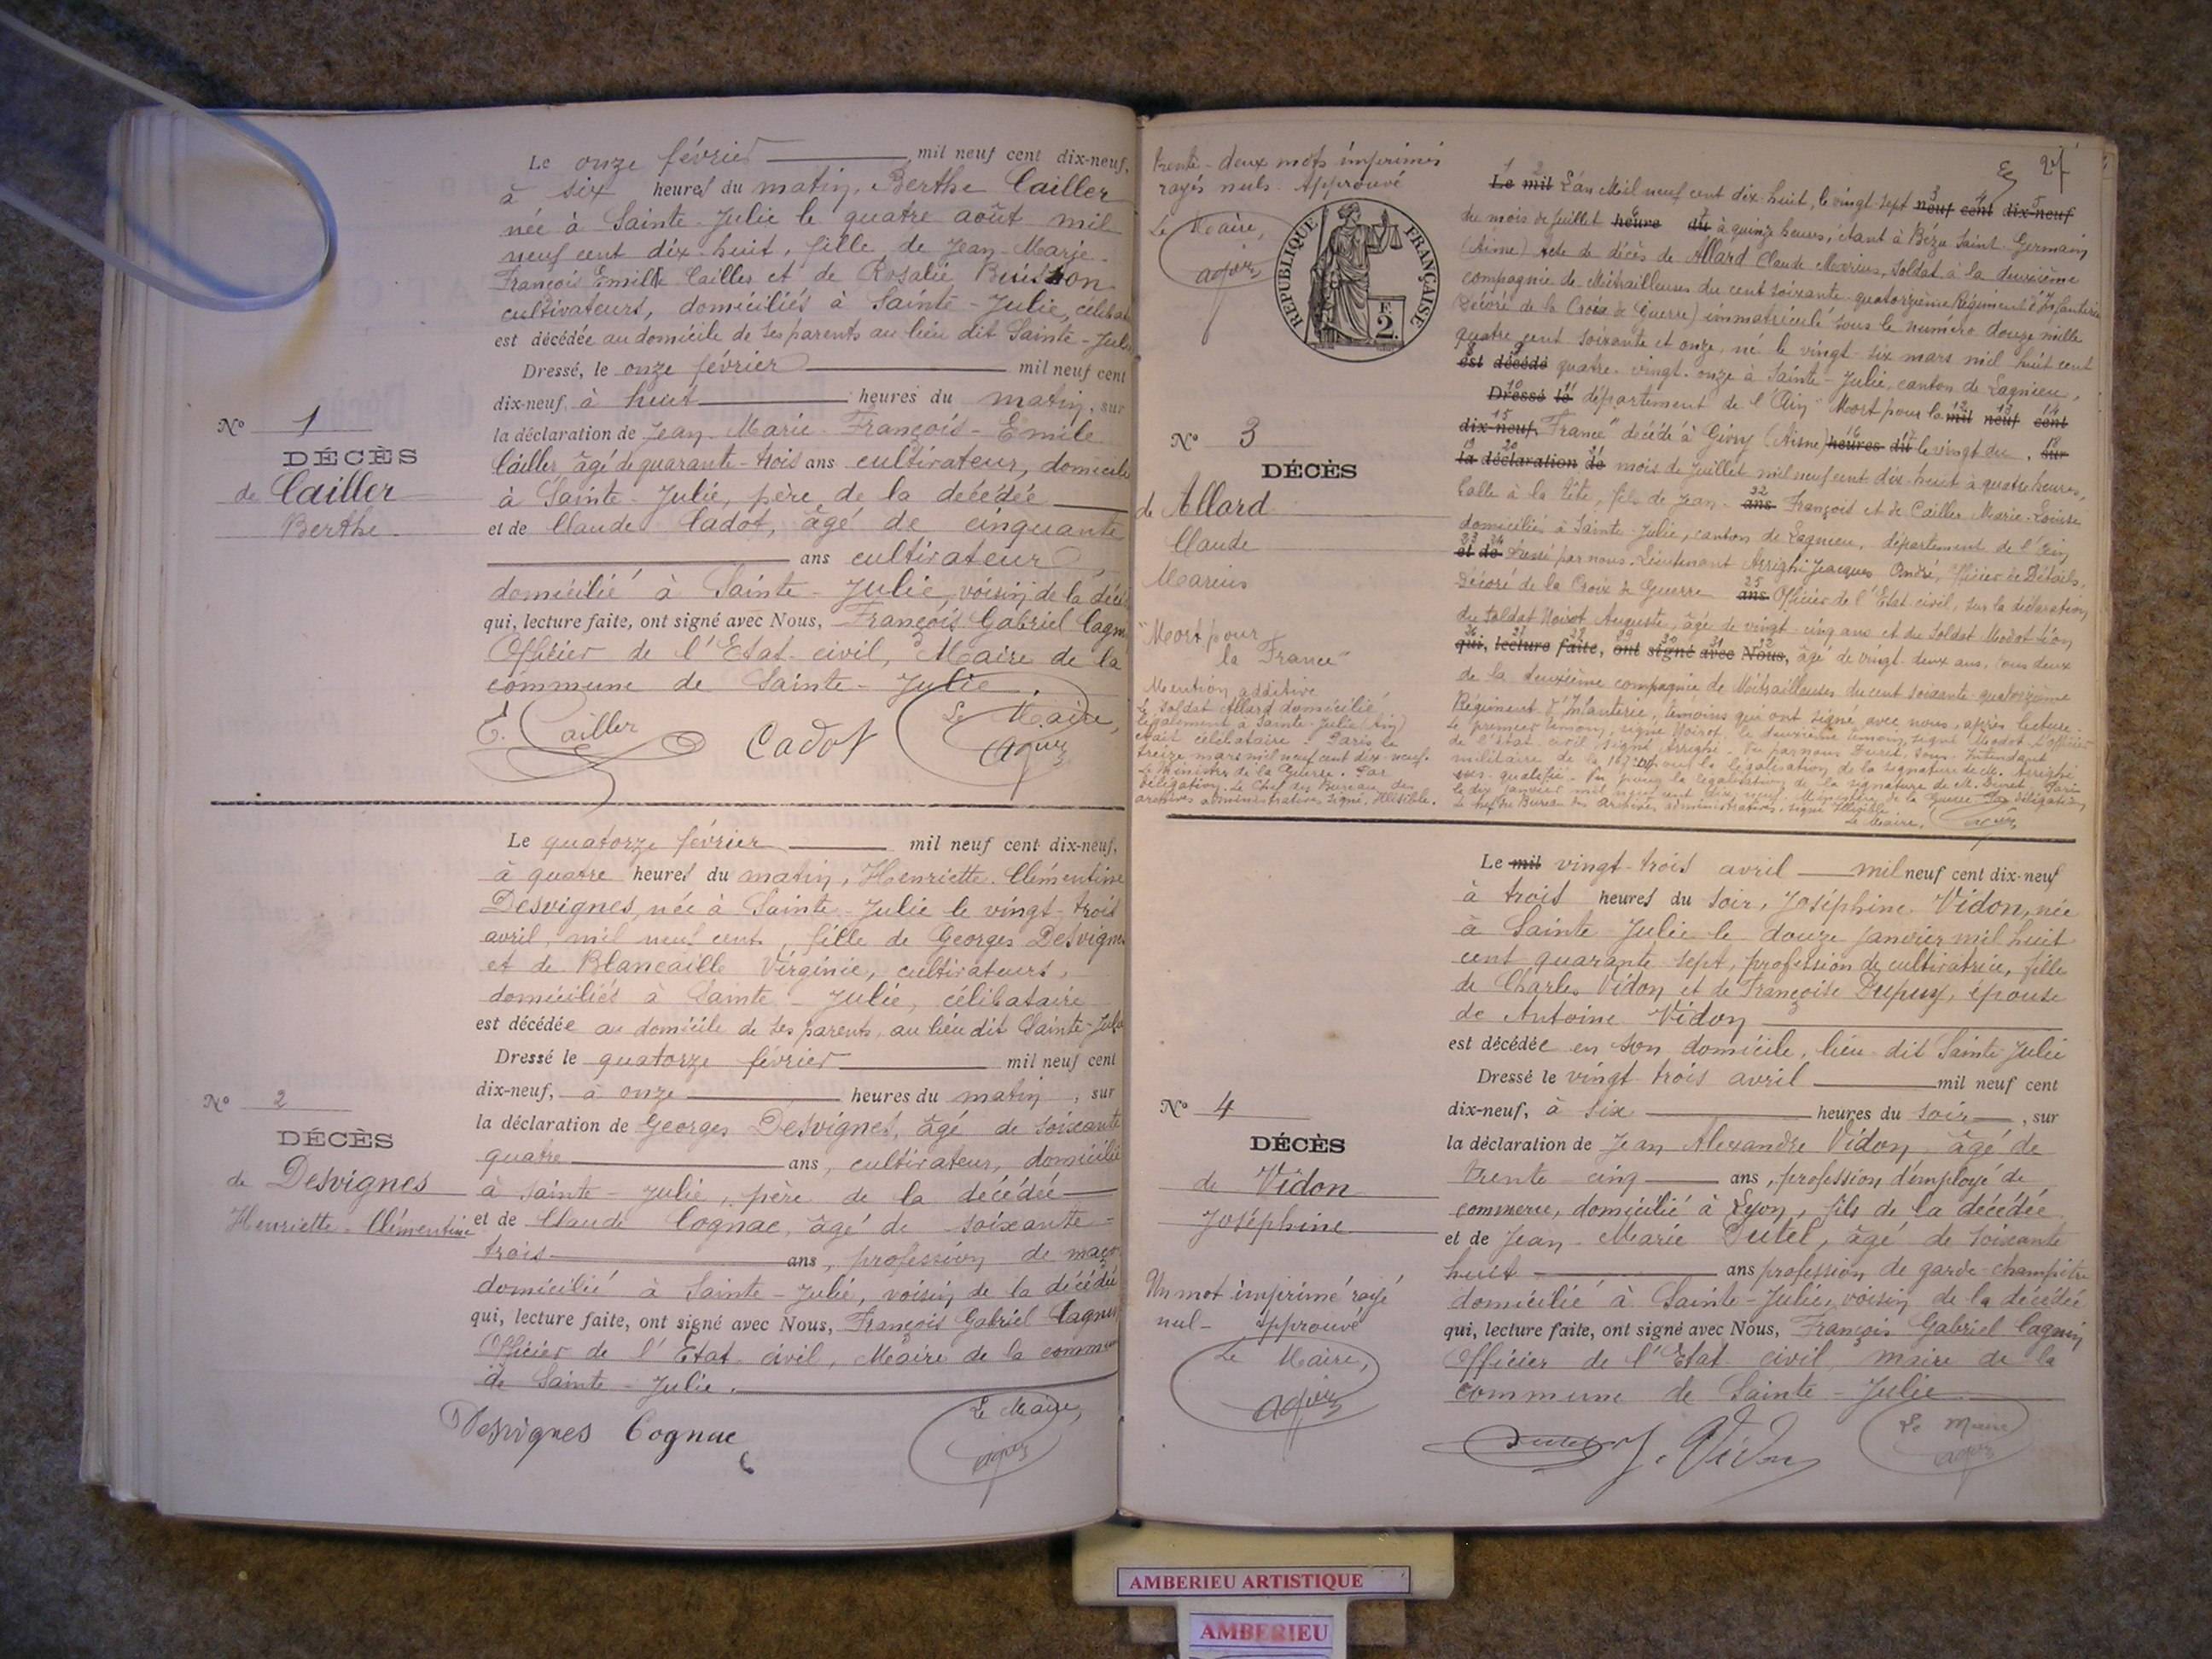 Le onze février mil neuf cent dix-neuf,
à six heures du matin, Berthe Cailler
née à Sainte-Julie le quatre août mil
neuf cent dix-huit, fille de Jean-Marie-
François Emile Cailler et de Rosalie Buisson
cultivateurs, domiciliés à Sainte-Julie,
est décédée au domicile de ses parents au lieu dit Sainte-Julie
Dressé, le onze février mil neuf cent
dix-neuf, à huit heures du matin, sur
la déclaration de Jean-Marie-François-Emile
Cailler âgé de quarante-trois ans cultivateur, domicilié
à Sainte-Julie, père de la décédée
et de Claude Cadot, âgé de cinquante
ans cultivateur
domicilié à Sainte-Julie, voisin de la
qui, lecture faite, ont signé avec Nous, François Gabriel
Officier de l'Etat-civil, Maire de la
commune de Sainte-Julie.
E. Cailler Cadot Le Maire,
N° 1
DÉCÈS
de Cailler
Berthe
Le quatorze février mil neuf cent dix-neuf,
à quatre heures du matin, Henriette Clémentine
Desvignes, née à Sainte-Julie le vingt-trois
avril, mil neuf cent, fille de Georges Desvignes
et de Blancaille Virginie, cultivateurs,
domiciliés à Sainte-Julie, célibataire
est décédée au domicile de ses parents, au lieu dit Sainte-Julie
Dressé le quatorze février mil neuf cent
dix-neuf, à onze heures du matin, sur
la déclaration de Georges Desvignes, âgé de soixante
quatre ans, cultivateur, domicilié
à Sainte-Julie, père de la décédée
et de Claude Cognac, âgé de soixante-
trois ans, profession de maçon
domicilié à Sainte-Julie, voisin de la décédée
qui, lecture faite, ont signé avec Nous, François Gabriel
Officier de l'Etat-civil, Maire de la commune
de Sainte-Julie.
Desvignes Cognac Le Maire,
N° 2
DÉCÈS
de Desvignes
Henriette-Clémentine
27
Trente-deux mots imprimés
rayés nuls. Approuvé
Le Maire,
RÉPUBLIQUE FRANÇAISE
F. 2.
1 2 3 4 5
Le mil L'an Mil neuf cent dix-huit, le vingt-sept neuf cent dix-neuf
du mois de Juillet heure du à quinze heures, étant à Bézu Saint-Germain
(Aisne) acte de décès de Allard Claude Marius, Soldat à la deuxième
compagnie de Mitrailleuses du cent soixante-quatorzième Régiment d'Infanterie
Décoré de la Croix de Guerre) immatriculé sous le numéro douze mille
quatre cent soixante et onze, né le vingt-six mars mil huit cent
est décédé quatre-vingt-onze à Sainte-Julie, canton de Lagnieu,
Dressé le département de l'Ain "Mort pour la mil neuf cent
dix-neuf, France" décédé à Givry (Aisne) heures du le vingt du, sur
la déclaration de mois de Juillet mil neuf cent dix-huit à quatre heures,
balle à la tête, fils de Jean- ans François et de Cailler Marie-Louise
domiciliés à Sainte-Julie, canton de Lagnieu, département de l'Ain
et de Dressé par nous Lieutenant Arrighi Jacques André, Officier de Détails,
Décoré de la Croix de Guerre ans Officier de l'Etat-civil, sur la déclaration
du soldat Noirot Auguste, âgé de vingt-cinq ans et du Soldat Modot Léon
qui, lecture faite, ont signé avec Nous, âgé de vingt-deux ans, tous deux
de la deuxième compagnie de Mitrailleuses du cent soixante-quatorzième
Régiment d'Infanterie, témoins qui ont signé avec nous, après lecture.
Le premier témoin, signé Noirot, le deuxième témoin, signé Modot L'officier
de l'état civil signé Arrighi. Vu par nous Duret Sous-Intendant
militaire de la pour la légalisation de la signature de M. Arrighi
sus-qualifié. Vu pour la légalisation de la signature de M. Duret. Paris
le dix janvier mil neuf cent dix-neuf. Ministère de la Guerre Par délégation
Le chef du Bureau des Archives administratives, signé Illisible.
Le Maire,
N° 3
DÉCÈS
de Allard
Claude
Marius
"Mort pour
la France"
Mention additive
Le soldat Allard domicilié
légalement à Sainte-Julie (Ain)
était célibataire. Paris le
treize mars mil neuf cent dix-neuf.
Le Ministre de la Guerre. Par
délégation. Le Chef du Bureau des
archives administratives, signé, Illisible.
Le mil vingt-trois avril mil neuf cent dix-neuf
à trois heures du soir, Joséphine Vidon, née
à Sainte-Julie le douze janvier mil huit
cent quarante-sept, profession de cultivatrice, fille
de Charles Vidon et de Françoise Dupuy, épouse
de Antoine Vidon
est décédée en son domicile, lieu-dit Sainte-Julie
Dressé le vingt-trois avril mil neuf cent
dix-neuf, à six heures du soir, sur
la déclaration de Jean Alexandre Vidon âgé de
trente-cinq ans, profession d'employé de
commerce, domicilié à Lyon, fils de la décédée
et de Jean-Marie Dutel, âgé de soixante
huit ans profession de garde-champêtre
domicilié à Sainte-Julie, voisin de la décédée
qui, lecture faite, ont signé avec Nous, François Gabriel
Officier de l'Etat-civil, maire de la
commune de Sainte-Julie
Dutel J. Vidon Le Maire
N° 4
DÉCÈS
de Vidon
Joséphine
Un mot imprimé rayé
nul- Approuvé
Le Maire,
AMBERIEU ARTISTIQUE
AMBERIEU